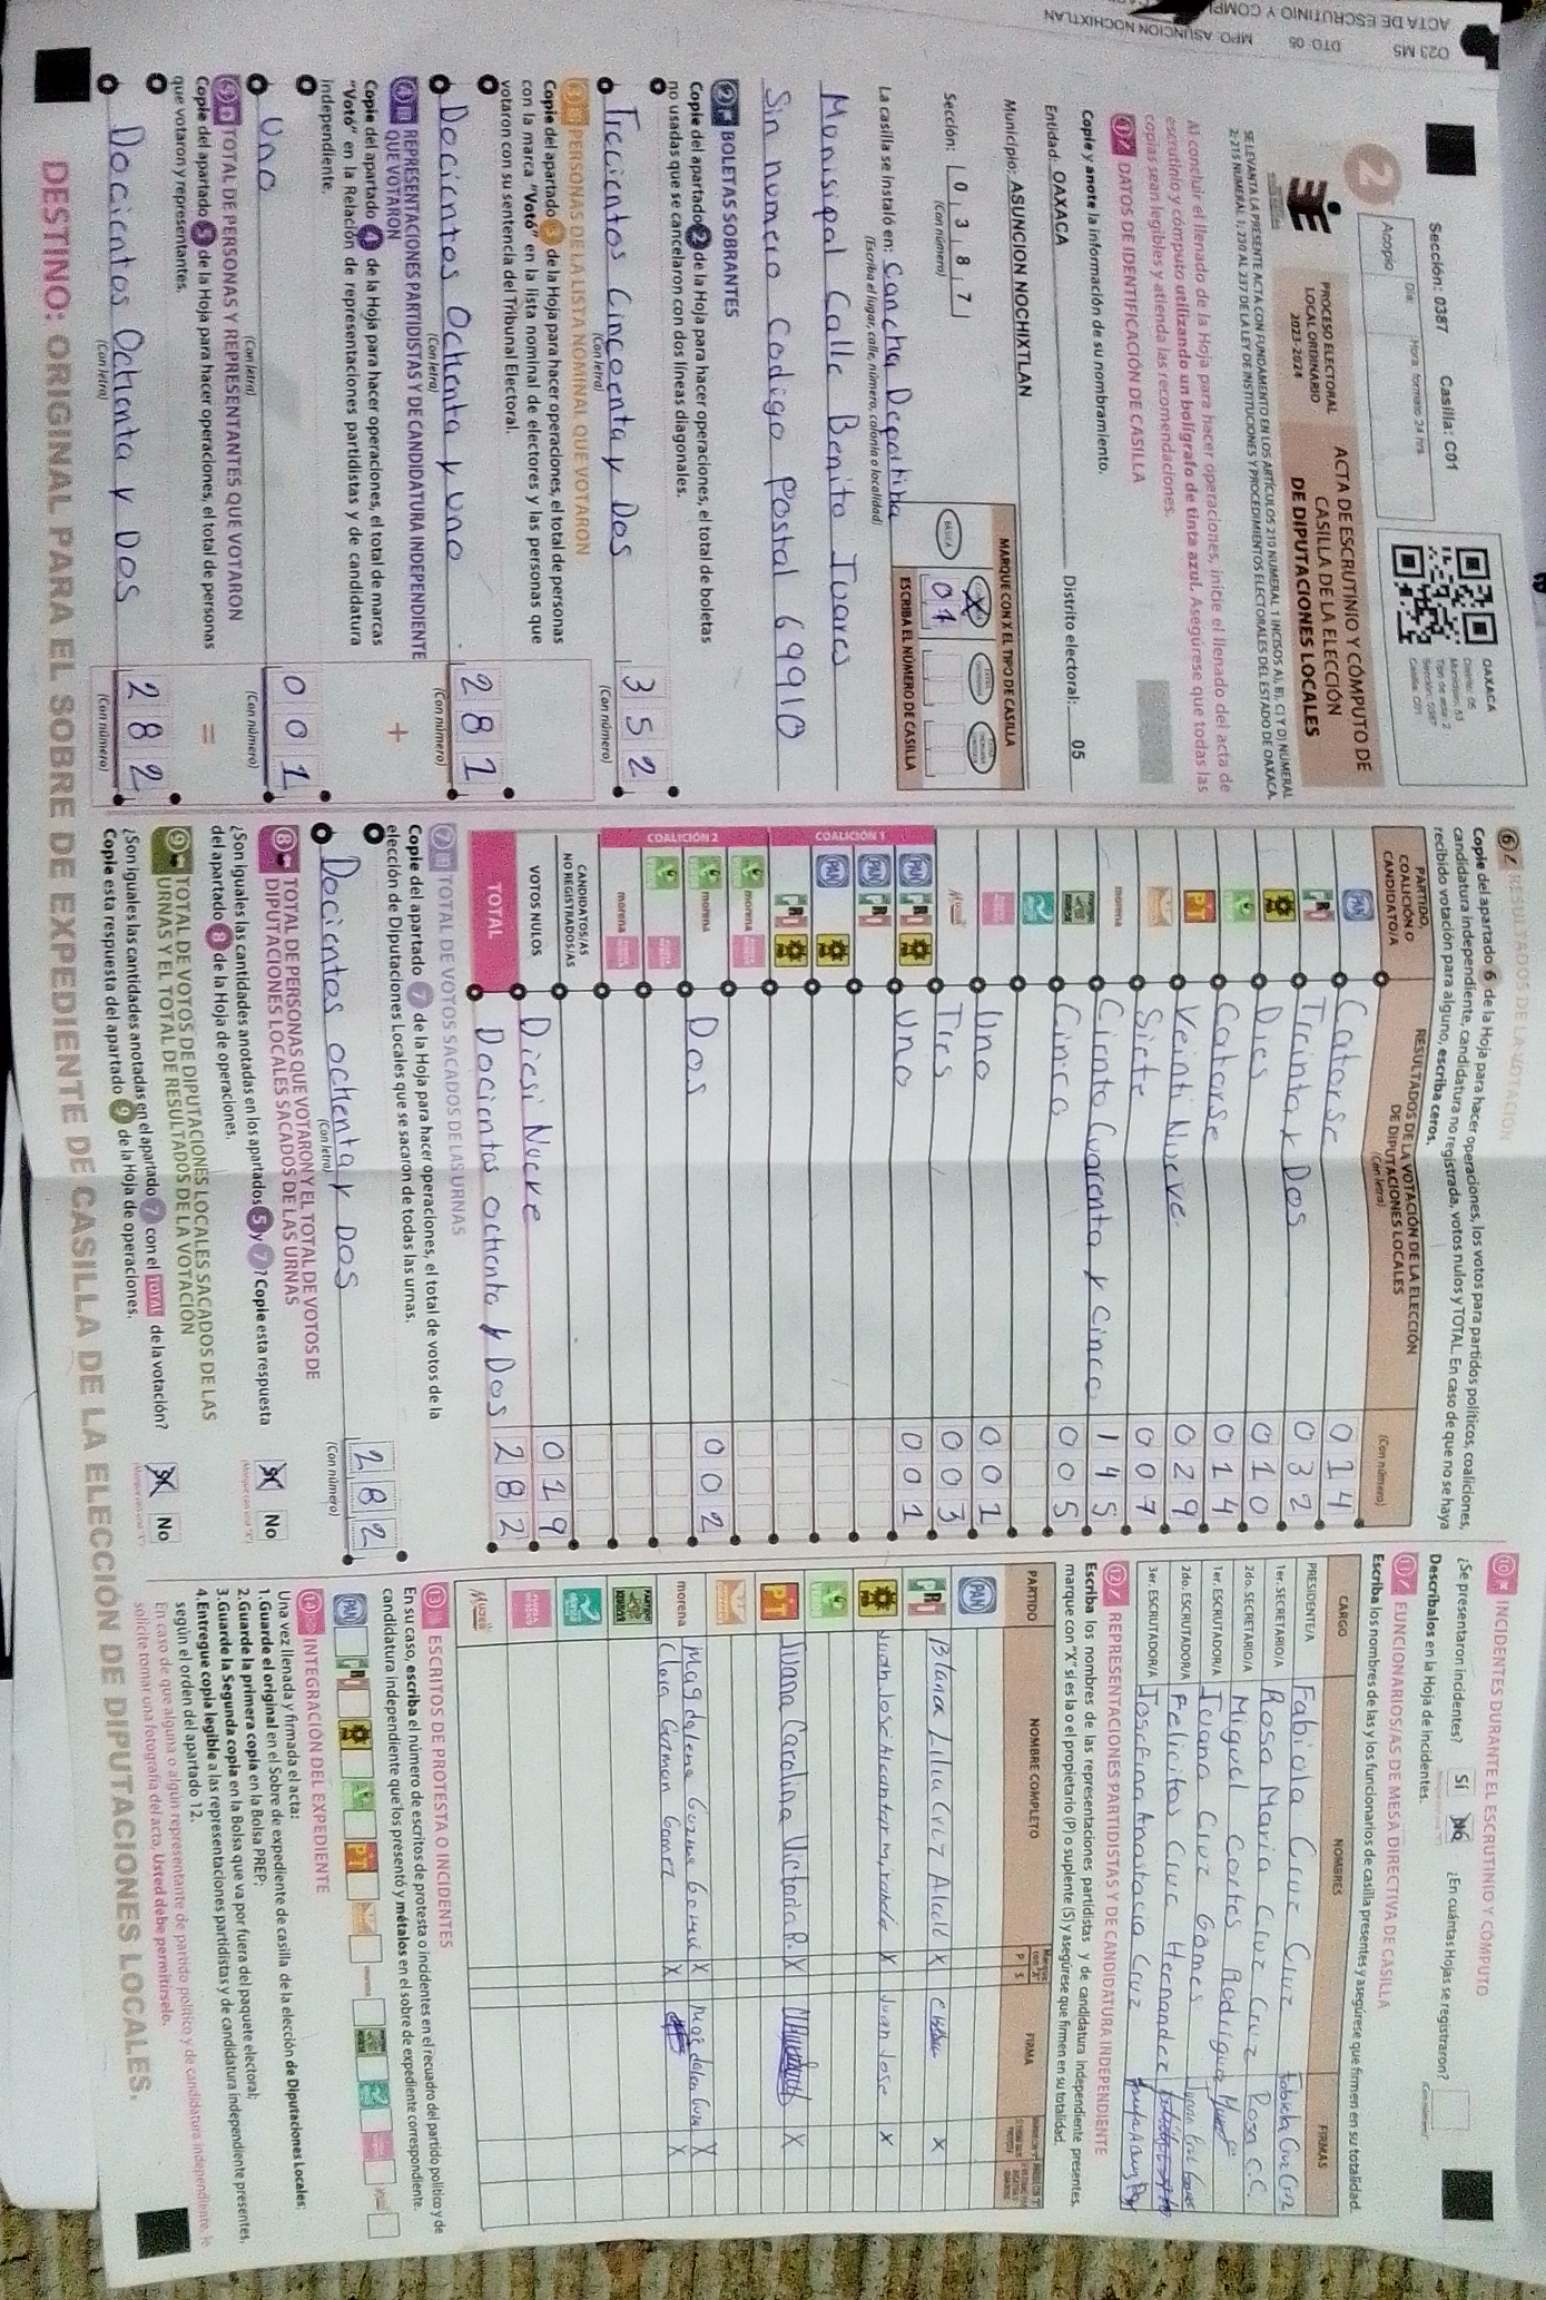 O23 M5
DTO: 05
MPO: ASUNCION NOCHIXTLAN
Sección: 0387 Casilla: C01
Acopio
Día:
Hora: formato 24 hrs
OAXACA
2
PROCESO ELECTORAL
LOCAL ORDINARIO
2023-2024
ACTA DE ESCRUTINIO Y CÓMPUTO DE
CASILLA DE LA ELECCIÓN
DE DIPUTACIONES LOCALES
Al concluir el llenado de la Hoja para hacer operaciones, inicie el llenado del acta de
escrutinio y cómputo utilizando un bolígrafo de tinta azul. Asegúrese que todas las
copias sean legibles y atienda las recomendaciones.
1 DATOS DE IDENTIFICACIÓN DE CASILLA
Copie y anote la información de su nombramiento.
Entidad: OAXACA Distrito electoral: 05
Municipio: ASUNCION NOCHIXTLAN
Sección: 0387
(Con número)
MARQUE CON X EL TIPO DE CASILLA
BÁSICA
X
01
ESCRIBA EL NÚMERO DE CASILLA
La casilla se instaló en: Cancha Deportiba
(Escriba el lugar, calle, número, colonia o localidad)
Munisipal Calle Benito Juares
Sin numero Codigo Postal 69910
2 BOLETAS SOBRANTES
Copie del apartado 2 de la Hoja para hacer operaciones, el total de boletas
no usadas que se cancelaron con dos líneas diagonales.
Trecientos Cincoenta y Dos 352
(Con letra) (Con número)
3 PERSONAS DE LA LISTA NOMINAL QUE VOTARON
Copie del apartado 3 de la Hoja para hacer operaciones, el total de personas
con la marca "Votó" en la lista nominal de electores y las personas que
votaron con su sentencia del Tribunal Electoral.
Docientos Ochenta y uno 281
(Con letra) (Con número)
4 REPRESENTACIONES PARTIDISTAS Y DE CANDIDATURA INDEPENDIENTE
QUE VOTARON
+
Copie del apartado 4 de la Hoja para hacer operaciones, el total de marcas
"Votó" en la Relación de representaciones partidistas y de candidatura
independiente.
Uno 001
(Con letra) (Con número)
5 TOTAL DE PERSONAS Y REPRESENTANTES QUE VOTARON
=
Copie del apartado 5 de la Hoja para hacer operaciones, el total de personas
que votaron y representantes.
Docientos Ochenta y Dos 282
(Con letra) (Con número)
6 RESULTADOS DE LA VOTACIÓN
Copie del apartado 6 de la Hoja para hacer operaciones, los votos para partidos políticos, coaliciones,
candidatura independiente, candidatura no registrada, votos nulos y TOTAL. En caso de que no se haya
recibido votación para alguno, escriba ceros.
PARTIDO,
COALICIÓN O
CANDIDATO/A
RESULTADOS DE LA VOTACIÓN DE LA ELECCIÓN
DE DIPUTACIONES LOCALES
(Con letra) (Con número)
PAN Catorse 014
PRI Treinta y Dos 032
Dies 010
Catorse 014
PT Veinti Nueve 029
Siete 007
morena Ciento Cuarenta y Cinco 145
Cinco 005
Uno 001
Tres 003
COALICIÓN 1
PAN PRI Uno 001
PAN PRI
PAN
PRI
COALICIÓN 2
morena
morena Dos 002
morena
CANDIDATOS/AS
NO REGISTRADOS/AS
VOTOS NULOS Diesi Nueve 019
TOTAL Docientos ochenta y Dos 282
7 TOTAL DE VOTOS SACADOS DE LAS URNAS
Copie del apartado 7 de la Hoja para hacer operaciones, el total de votos de la
elección de Diputaciones Locales que se sacaron de todas las urnas.
Docientos ochenta y Dos 282
(Con letra) (Con número)
8 TOTAL DE PERSONAS QUE VOTARON Y EL TOTAL DE VOTOS DE
DIPUTACIONES LOCALES SACADOS DE LAS URNAS
¿Son iguales las cantidades anotadas en los apartados 5 y 7? Copie esta respuesta
del apartado 8 de la Hoja de operaciones.
No
9 TOTAL DE VOTOS DE DIPUTACIONES LOCALES SACADOS DE LAS
URNAS Y EL TOTAL DE RESULTADOS DE LA VOTACIÓN
¿Son iguales las cantidades anotadas en el apartado 7 con el TOTAL de la votación?
Copie esta respuesta del apartado 9 de la Hoja de operaciones.
No
10 INCIDENTES DURANTE EL ESCRUTINIO Y CÓMPUTO
¿Se presentaron incidentes? Sí No ¿En cuántas Hojas se registraron?
Descríbalos en la Hoja de incidentes.
11 FUNCIONARIOS/AS DE MESA DIRECTIVA DE CASILLA
Escriba los nombres de las y los funcionarios de casilla presentes y asegúrese que firmen en su totalidad.
CARGO NOMBRES FIRMAS
PRESIDENTE/A Fabiola Cruz Cruz
1er. SECRETARIO/A Rosa Maria Cruz Cruz Rosa C.C.
2do. SECRETARIO/A Miguel Cortes Rodriguez
1er. ESCRUTADOR/A Juana Cruz Gomes
2do. ESCRUTADOR/A Felicitas Cruz Hernandez
3er. ESCRUTADOR/A Josefina Anastacia Cruz
12 REPRESENTACIONES PARTIDISTAS Y DE CANDIDATURA INDEPENDIENTE
Escriba los nombres de las representaciones partidistas y de candidatura independiente presentes,
marque con "X" si es la o el propietario (P) o suplente (S) y asegúrese que firmen en su totalidad.
PARTIDO NOMBRE COMPLETO P S FIRMA
PAN
PRI Blanca Lilia Cruz X X
Juan Jose X Juan Jose X
PT Juana Carolina Victoria R. X X
morena Magdalena X X
Clara Guzman Gomez X X
13 ESCRITOS DE PROTESTA O INCIDENTES
En su caso, escriba el número de escritos de protesta o incidentes en el recuadro del partido político y de
candidatura independiente que los presentó y métalos en el sobre de expediente correspondiente.
PAN PRI PT morena
14 INTEGRACIÓN DEL EXPEDIENTE
Una vez llenada y firmada el acta:
1. Guarde el original en el Sobre de expediente de casilla de la elección de Diputaciones Locales;
2. Guarde la primera copia en la Bolsa PREP;
3. Guarde la Segunda copia en la Bolsa que va por fuera del paquete electoral;
4. Entregue copia legible a las representaciones partidistas y de candidatura independiente presentes,
según el orden del apartado 12.
En caso de que alguna o algún representante de partido político y de candidatura independiente, le
solicite tomar una fotografía del acta, Usted debe permitírselo.
DESTINO: ORIGINAL PARA EL SOBRE DE EXPEDIENTE DE CASILLA DE LA ELECCIÓN DE DIPUTACIONES LOCALES.